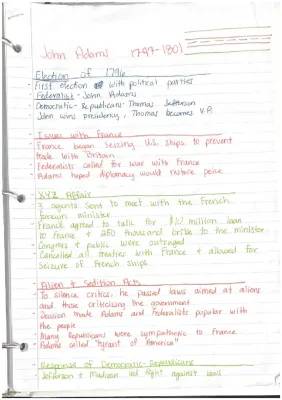 John Adams 1797-1801
Election of 1796
First election with political parties
Federalist - John Adams
Democratic-Republicans: Thomas Jefferson
John wins presidency, Thomas becomes V.P.
Issues with France
France began seizing U.S. ships to prevent
trade with Britain
Federalists called for war with France
Adams hoped diplomacy would restore peace
XYZ Affair
3 agents sent to meet with the French
foreign minister
France agreed to talk for $10 million loan
to France + 250 thousand bribe to the minister
Congress + public were outraged
Cancelled all treaties with France + allowed for
seizure of French ships
Alien + Sedition Acts
To silence critics, he passed laws aimed at aliens
and those criticizing the government
made Adams and Federalists popular with
the people
Many Republicans were sympathetic to France
Adams called "tyrant of America"
Response of Democratic-Republicans
Jefferson + Madison led fight against laws